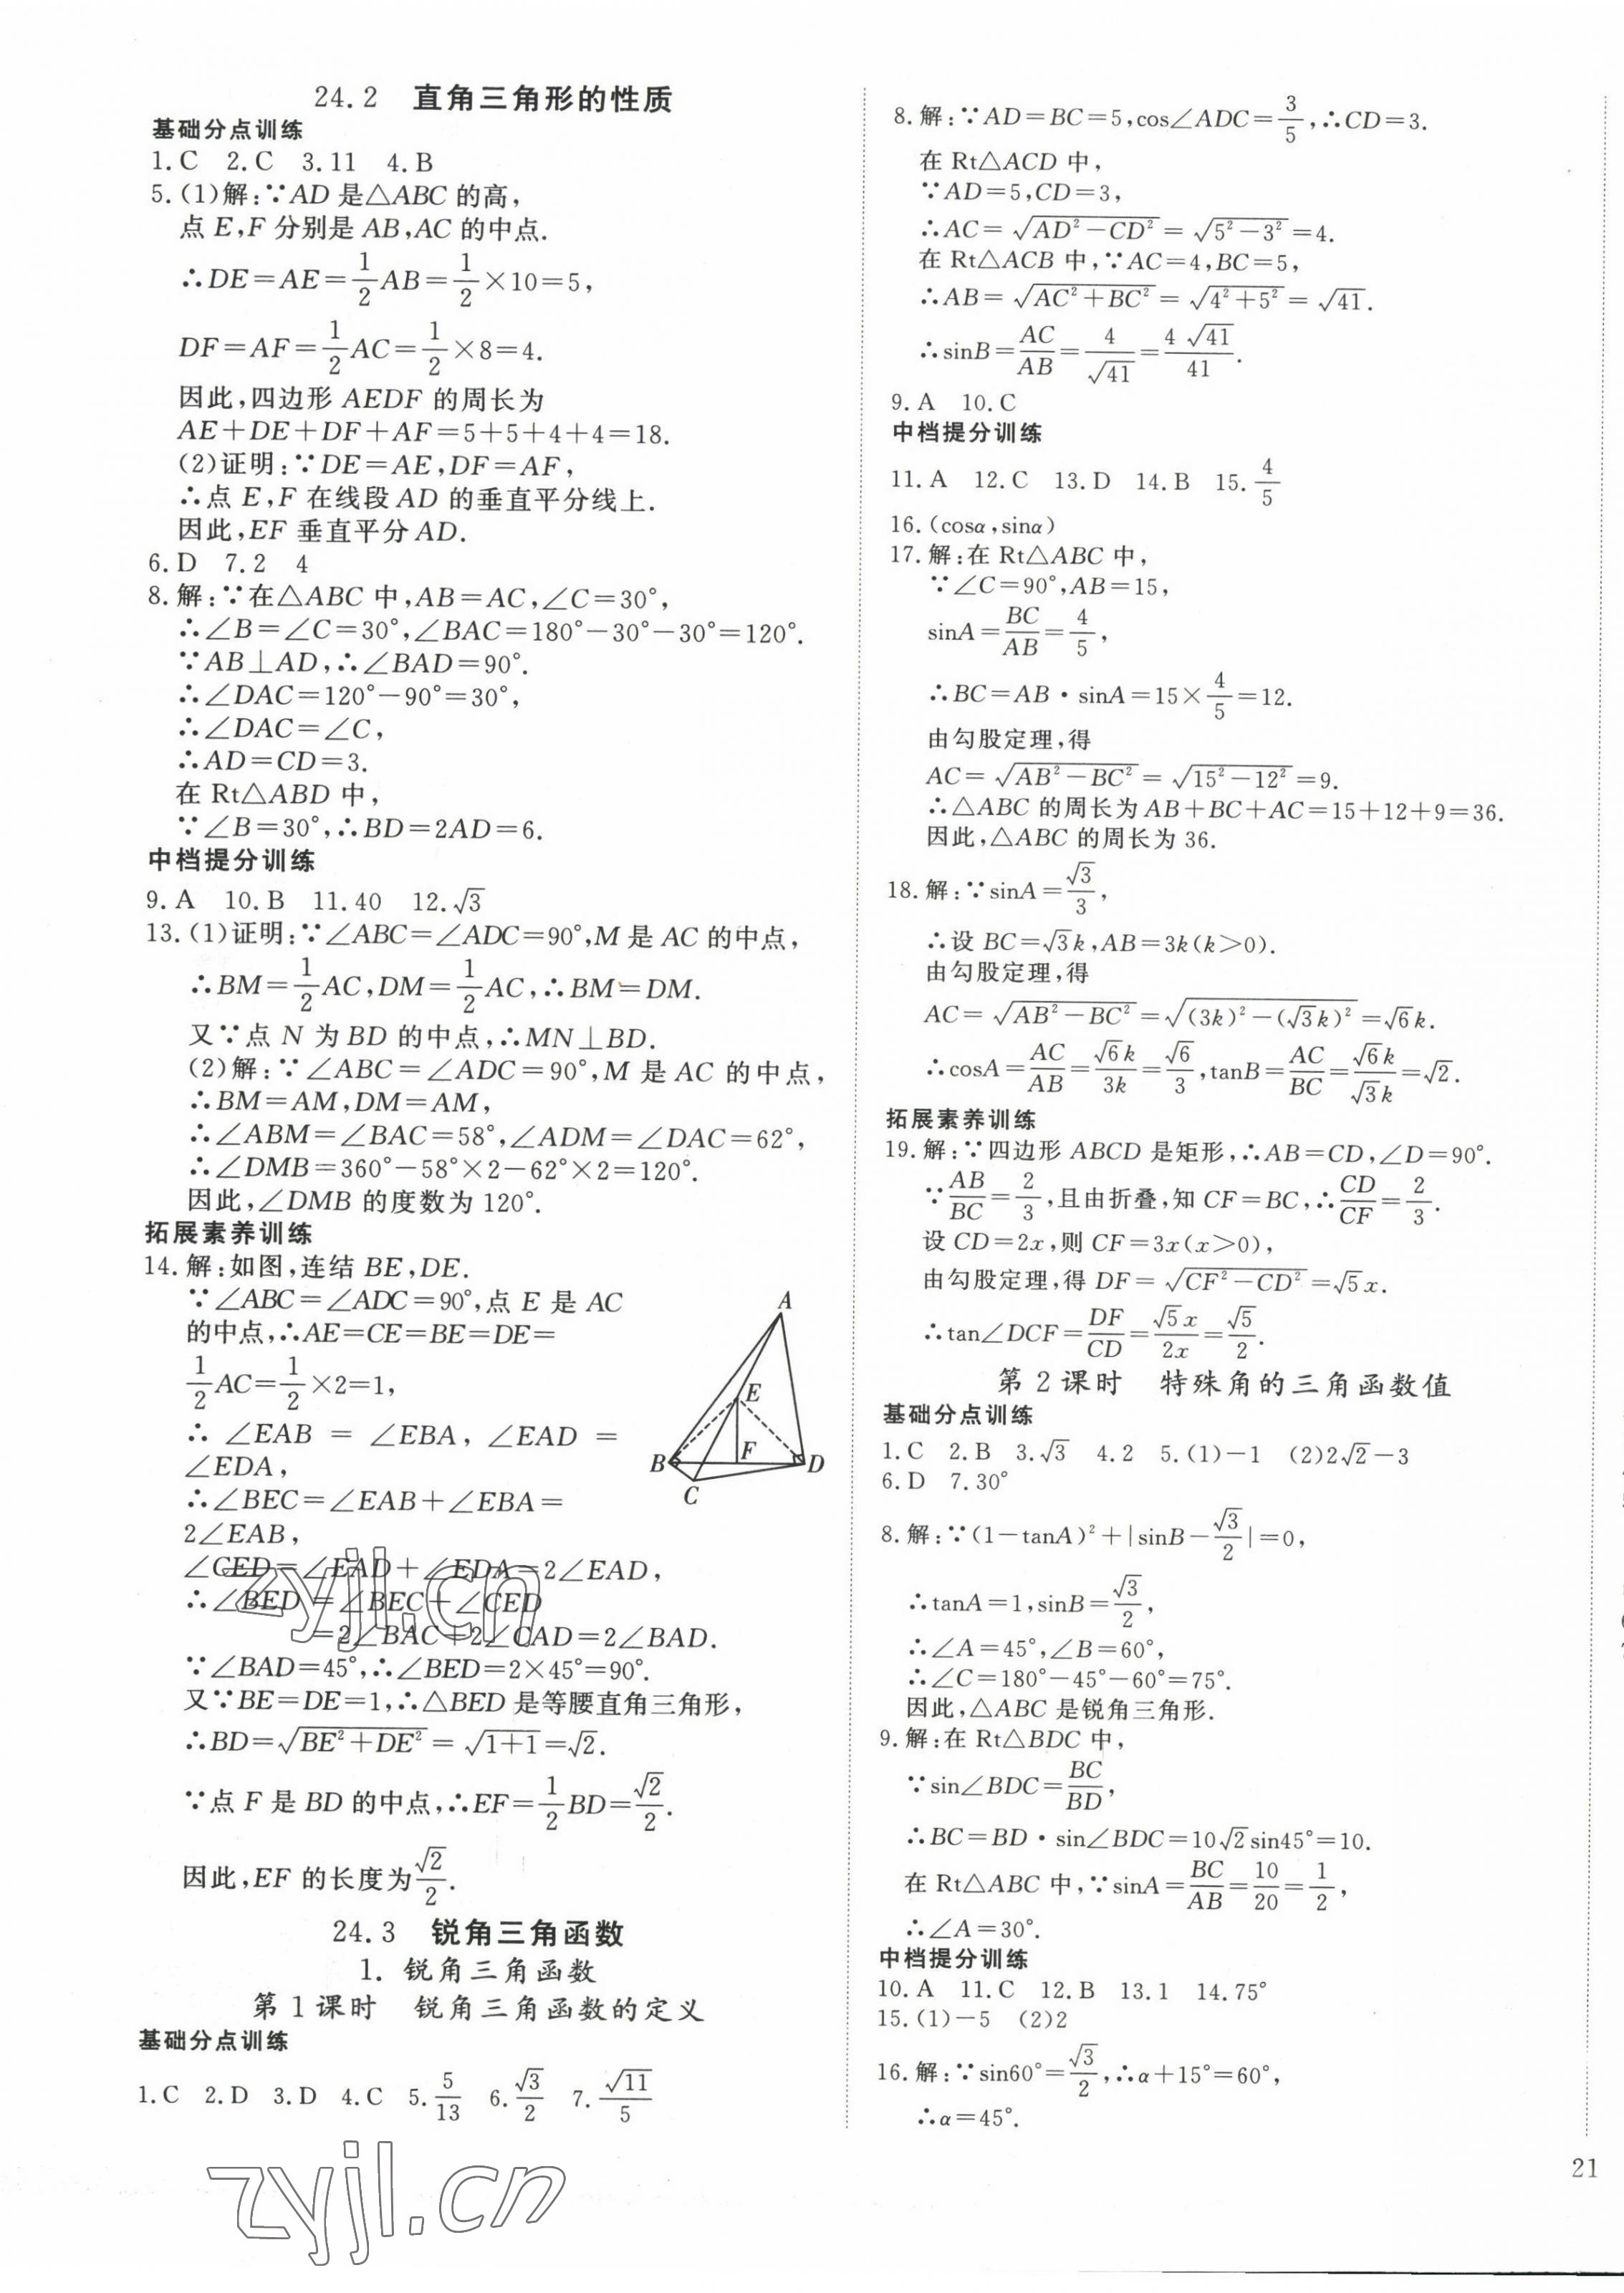 24.2 直角三角形的性质
基础分点训练
1.C 2.C 3.11 4.B
5.(1)解:∵AD 是△ABC 的高,
点 E,F 分别是 AB,AC 的中点.
∴DE=AE=1/2AB=1/2×10=5,
DF=AF=1/2AC=1/2×8=4.
因此,四边形 AEDF 的周长为
AE+DE+DF+AF=5+5+4+4=18.
(2)证明:∵DE=AE,DF=AF,
∴点 E,F 在线段 AD 的垂直平分线上.
因此,EF 垂直平分 AD.
6.D 7.2 4
8.解:∵在△ABC 中,AB=AC,∠C=30°,
∴∠B=∠C=30°,∠BAC=180°-30°-30°=120°.
∵AB⊥AD,∴∠BAD=90°.
∴∠DAC=120°-90°=30°,
∴∠DAC=∠C,
∴AD=CD=3.
在 Rt△ABD 中,
∵∠B=30°,∴BD=2AD=6.
中档提分训练
9.A 10.B 11.40 12.√3
13.(1)证明:∵∠ABC=∠ADC=90°,M 是 AC 的中点,
∴BM=1/2AC,DM=1/2AC,∴BM=DM.
又∵点 N 为 BD 的中点,∴MN⊥BD.
(2)解:∵∠ABC=∠ADC=90°,M 是 AC 的中点,
∴BM=AM,DM=AM,
∴∠ABM=∠BAC=58°,∠ADM=∠DAC=62°,
∴∠DMB=360°-58°×2-62°×2=120°.
因此,∠DMB 的度数为 120°.
拓展素养训练
14.解:如图,连结 BE,DE.
∵∠ABC=∠ADC=90°,点 E 是 AC
的中点,∴AE=CE=BE=DE=
1/2AC=1/2×2=1,
∴ ∠EAB = ∠EBA, ∠EAD =
∠EDA,
∴∠BEC=∠EAB+∠EBA=
2∠EAB,
∠CED=∠EAD+∠EDA=2∠EAD,
∴∠BED=∠BEC+∠CED
=2∠BAC+2∠CAD=2∠BAD.
∵∠BAD=45°,∴∠BED=2×45°=90°.
又∵BE=DE=1,∴△BED 是等腰直角三角形,
∴BD=√(BE²+DE²)=√(1+1)=√2.
∵点 F 是 BD 的中点,∴EF=1/2BD=√2/2.
因此,EF 的长度为√2/2.
A
E
B
F
D
C
24.3 锐角三角函数
1. 锐角三角函数
第 1 课时 锐角三角函数的定义
基础分点训练
1.C 2.D 3.D 4.C 5.5/13 6.√3/2 7.√11/5
8.解:∵AD=BC=5,cos∠ADC=3/5,∴CD=3.
在 Rt△ACD 中,
∵AD=5,CD=3,
∴AC=√(AD²-CD²)=√(5²-3²)=4.
在 Rt△ACB 中,∵AC=4,BC=5,
∴AB=√(AC²+BC²)=√(4²+5²)=√41.
∴sinB=AC/AB=4/√41=4√41/41.
9.A 10.C
中档提分训练
11.A 12.C 13.D 14.B 15.4/5
16.(cosα,sinα)
17.解:在 Rt△ABC 中,
∵∠C=90°,AB=15,
sinA=BC/AB=4/5,
∴BC=AB·sinA=15×4/5=12.
由勾股定理,得
AC=√(AB²-BC²)=√(15²-12²)=9.
∴△ABC 的周长为 AB+BC+AC=15+12+9=36.
因此,△ABC 的周长为 36.
18.解:∵sinA=√3/3,
∴设 BC=√3k,AB=3k(k>0).
由勾股定理,得
AC=√(AB²-BC²)=√((3k)²-(√3k)²)=√6k.
∴cosA=AC/AB=√6k/3k=√6/3,tanB=AC/BC=√6k/√3k=√2.
拓展素养训练
19.解:∵四边形 ABCD 是矩形,∴AB=CD,∠D=90°.
∵AB/BC=2/3,且由折叠,知 CF=BC,∴CD/CF=2/3.
设 CD=2x,则 CF=3x(x>0),
由勾股定理,得 DF=√(CF²-CD²)=√5x.
∴tan∠DCF=DF/CD=√5x/2x=√5/2.
第 2 课时 特殊角的三角函数值
基础分点训练
1.C 2.B 3.√3 4.2 5.(1)-1 (2)2√2-3
6.D 7.30°
8.解:∵(1-tanA)²+|sinB-√3/2|=0,
∴tanA=1,sinB=√3/2,
∴∠A=45°,∠B=60°,
∴∠C=180°-45°-60°=75°.
因此,△ABC 是锐角三角形.
9.解:在 Rt△BDC 中,
∵sin∠BDC=BC/BD,
∴BC=BD·sin∠BDC=10√2sin45°=10.
在 Rt△ABC 中,∵sinA=BC/AB=10/20=1/2,
∴∠A=30°.
中档提分训练
10.A 11.C 12.B 13.1 14.75°
15.(1)-5 (2)2
16.解:∵sin60°=√3/2,∴α+15°=60°,
∴α=45°.
21
zyjl.cn
zyjl.cn